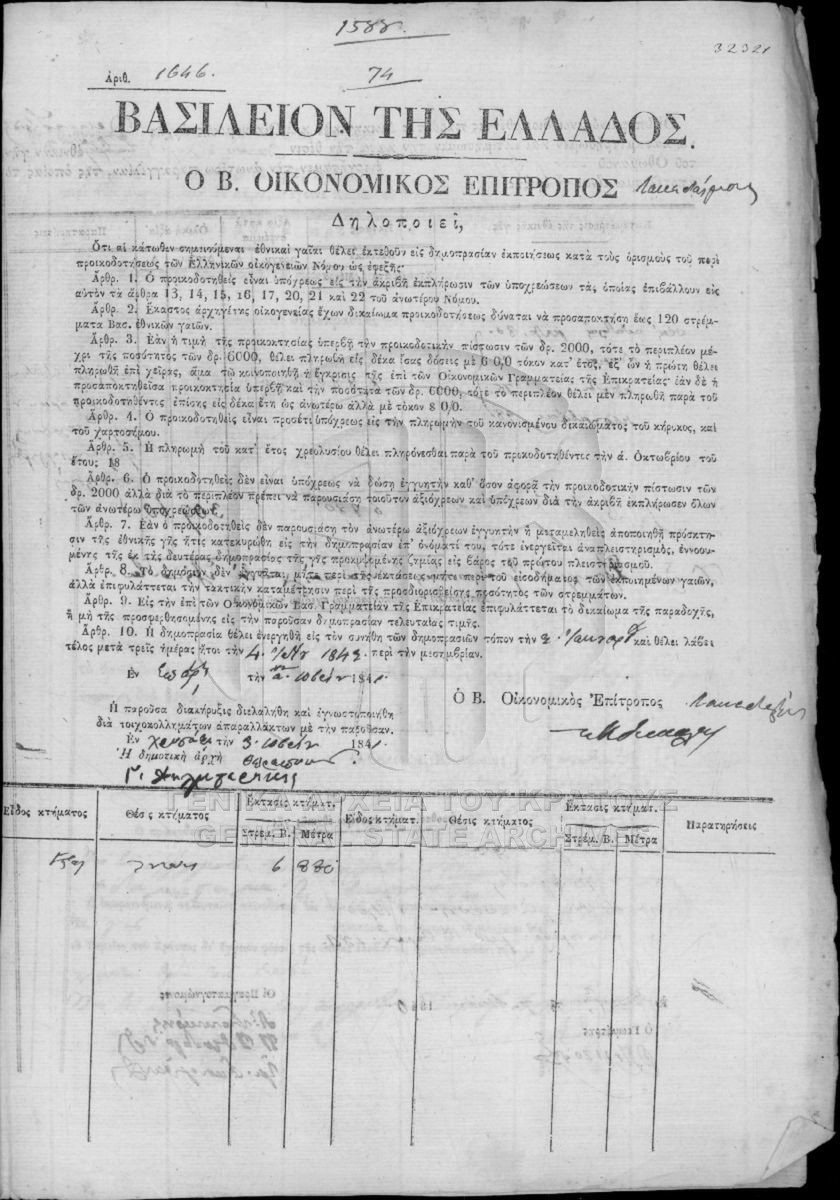 1588.
32321
Ἀριθ. 1646.
74
ΒΑΣΙΛΕΙΟΝ ΤΗΣ ΕΛΛΑΔΟΣ.
Ο Β. ΟΙΚΟΝΟΜΙΚΟΣ ΕΠΙΤΡΟΠΟΣ
Δηλοποιεῖ,
Ὅτι αἱ κάτωθεν σημειούμεναι ἐθνικαὶ γαῖαι θέλει ἐκτεθοῦν εἰς δημοπρασίαν ἐκποιήσεως κατὰ τοὺς ὁρισμοὺς τοῦ περὶ
προικοδοτήσεως τῶν Ἑλληνικῶν οἰκογενειῶν Νόμου ὡς ἐφεξῆς·
Ἄρθρ. 1. Ὁ προικοδοτηθεὶς εἶναι ὑπόχρεως εἰς τὴν ἀκριβῆ ἐκπλήρωσιν τῶν ὑποχρεώσεων τὰς ὁποίας ἐπιβάλλουν εἰς
αὐτὸν τὰ ἄρθρα 13, 14, 15, 16, 17, 20, 21 καὶ 22 τοῦ ἀνωτέρω Νόμου.
Ἄρθρ. 2. Ἕκαστος ἀρχηγέτης οἰκογενείας ἔχων δικαίωμα προικοδοτήσεως δύναται νὰ προσαποκτήσῃ ἕως 120 στρέμ-
ματα Βασ. ἐθνικῶν γαιῶν.
Ἄρθρ. 3. Ἐὰν ἡ τιμὴ τῆς προικοκτησίας ὑπερβῇ τὴν προικοδοτικὴν πίστωσιν τῶν δρ. 2000, τότε τὸ περιπλέον μέ-
χρι τῆς ποσότητος τῶν δρ. 6000, θέλει πληρωθῆ εἰς δέκα ἴσας δόσεις μὲ 6 0/0 τόκον κατ' ἔτος, ἐξ ὧν ἡ πρώτη θέλει
πληρωθῆ ἐπὶ χεῖρας, ἅμα τῷ κοινοποιηθῇ ἡ ἔγκρισις τῆς ἐπὶ τῶν Οἰκονομικῶν Γραμματείας τῆς Ἐπικρατείας· ἐὰν δὲ ἡ
προσαποκτηθεῖσα προικοκτησία ὑπερβῇ καὶ τὴν ποσότητα τῶν δρ. 6000, τότε τὸ περιπλέον θέλει μὲν πληρωθῆ παρὰ τοῦ
προικοδοτηθέντος ἐπίσης εἰς δέκα ἔτη ὡς ἀνωτέρω ἀλλὰ μὲ τόκον 8 0/0.
Ἄρθρ. 4. Ὁ προικοδοτηθεὶς εἶναι προσέτι ὑπόχρεως εἰς τὴν πληρωμὴν τοῦ κανονισμένου δικαιώματος τοῦ κήρυκος, καὶ
τοῦ χαρτοσήμου.
Ἄρθρ. 5. Ἡ πληρωμὴ τοῦ κατ' ἔτος χρεολυσίου θέλει πληρόνεσθαι παρὰ τοῦ προικοδοτηθέντος τὴν ά. Ὀκτωβρίου τοῦ
ἔτους 18
Ἄρθρ. 6. Ὁ προικοδοτηθεὶς δὲν εἶναι ὑπόχρεως νὰ δώσῃ ἐγγυητὴν καθ' ὅσον ἀφορᾷ τὴν προικοδοτικὴν πίστωσιν τῶν
δρ. 2000 ἀλλὰ διὰ τὸ περιπλέον πρέπει νὰ παρουσιάσῃ τοιοῦτον ἀξιόχρεων καὶ ὑπόχρεων διὰ τὴν ἀκριβῆ ἐκπλήρωσεν ὅλων
τῶν ἀνωτέρω ὑποχρεώσεων.
Ἄρθρ. 7. Ἐὰν ὁ προικοδοτηθεὶς δὲν παρουσιάσῃ τὸν ἀνωτέρω ἀξιόχρεων ἐγγυητὴν ἢ μεταμεληθεὶς ἀποποιηθῇ πρόσκτη-
σιν τῆς ἐθνικῆς γῆς ἥτις κατεκυρώθη εἰς τὴν δημοπρασίαν ἐπ' ὀνόματί του, τότε ἐνεργεῖται ἀναπλειστηρισμός, ἐννοου-
μένης τῆς ἐκ τῆς δευτέρας δημοπρασίας τῆς γῆς προκυψομένης ζημίας εἰς βάρος τοῦ πρώτου πλειστηριασμοῦ.
Ἄρθρ. 8. Τὸ δημόσιον δὲν ἐγγυᾶται, μήτε περὶ τῆς ἐκτάσεως μήτε περὶ τοῦ εἰσοδήματος τῶν ἐκποιημένων γαιῶν,
ἀλλὰ ἐπιφυλάττεται τὴν τακτικὴν καταμέτρησιν περὶ τῆς προσδιορισθείσης ποσότητος τῶν στρεμμάτων.
Ἄρθρ. 9. Εἰς τὴν ἐπὶ τῶν Οἰκονομικῶν Βασ. Γραμματείαν τῆς Ἐπικρατείας ἐπιφυλάττεται τὸ δικαίωμα τῆς παραδοχῆς,
ἢ μὴ τῆς προσφερθησομένης εἰς τὴν παροῦσαν δημοπρασίαν τελευταίας τιμῆς.
Ἄρθρ. 10. Ἡ δημοπρασία θέλει ἐνεργηθῆ εἰς τὸν συνήθη τῶν δημοπρασιῶν τόπον τὴν 2 καὶ θέλει λάβει
τέλος μετὰ τρεῖς ἡμέρας ἤτοι τὴν 4 περὶ τὴν μεσημβρίαν.
Ἐν τὴν 184
Ὁ Β. Οἰκονομικὸς Ἐπίτροπος
Ἡ παροῦσα διακήρυξις διελαλήθη καὶ ἐγνωστοποιήθη
διὰ τοιχοκολλημάτων ἀπαραλλάκτων μὲ τὴν παροῦσαν.
Ἐν τὴν 3 184
Ἡ δημοτικὴ ἀρχὴ
ΓΕΝΙΚΑ ΑΡΧΕΙΑ ΤΟΥ ΚΡΑΤΟΥΣ
GENERAL STATE ARCHIVES
Εἶδος κτήματος Θέσις κτήματος Ἔκτασις κτήματ. Εἶδος κτήματ. Θέσις κτήματος Ἔκτασις κτήματ. Παρατηρήσεις
Στρέμ. Β. Μέτρα Στρέμ. Β. Μέτρα
6 880